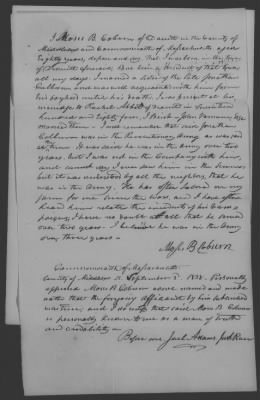 I Moses B. Coburn of Dracutt in the County of
Middlesex and Commonwealth of Massachusetts aged
Eighty years, depose and say, that I was born in the town
of Dracutt aforesaid, have been a resident of that town
all my days. I married a sister of the late Jonathan
Calhoun and was well acquainted with him from
his boyhood until his death. I was present at his
marriage to Rachel in Seventeen
hundred and eighty four, I think - John Varnum Esq
married them - I well remember that said Jonathan
Calhoun was in the Revolutionary Army as was said
at the time. It was said he was in the army over two
years, but I was not in the Company with him
and cannot say I ever saw him in the service,
but it was understood by all the neighbors, that he
was in the army. He has often labored on my
farm for me since the war, and I have often
heard him relate the incidents of his
I have no doubt at all that he served
over two years - I believe he was in the army
over three years -
Moses B Coburn
Commonwealth of Massachusetts
County of Middlesex ss. September 1838. Personally
appeared Moses B Coburn above named and made
oath that the foregoing affidavit by him subscribed
was true, and I do certify that said Moses B. Coburn
is personally known to me as a man of truth
and credibility -
Before me Joel Adams Jus. Peace